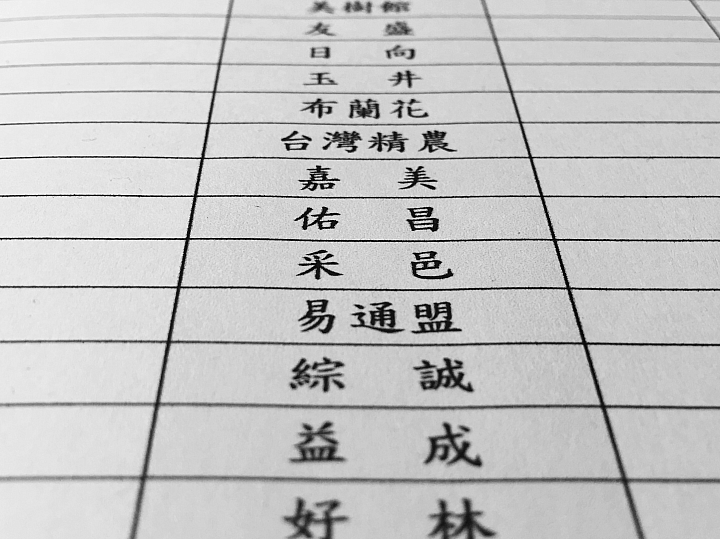 美樹館
友盛
日向
玉井
布蘭花
台灣精農
嘉美
佑昌
采邑
易通盟
綜誠
益成
好林